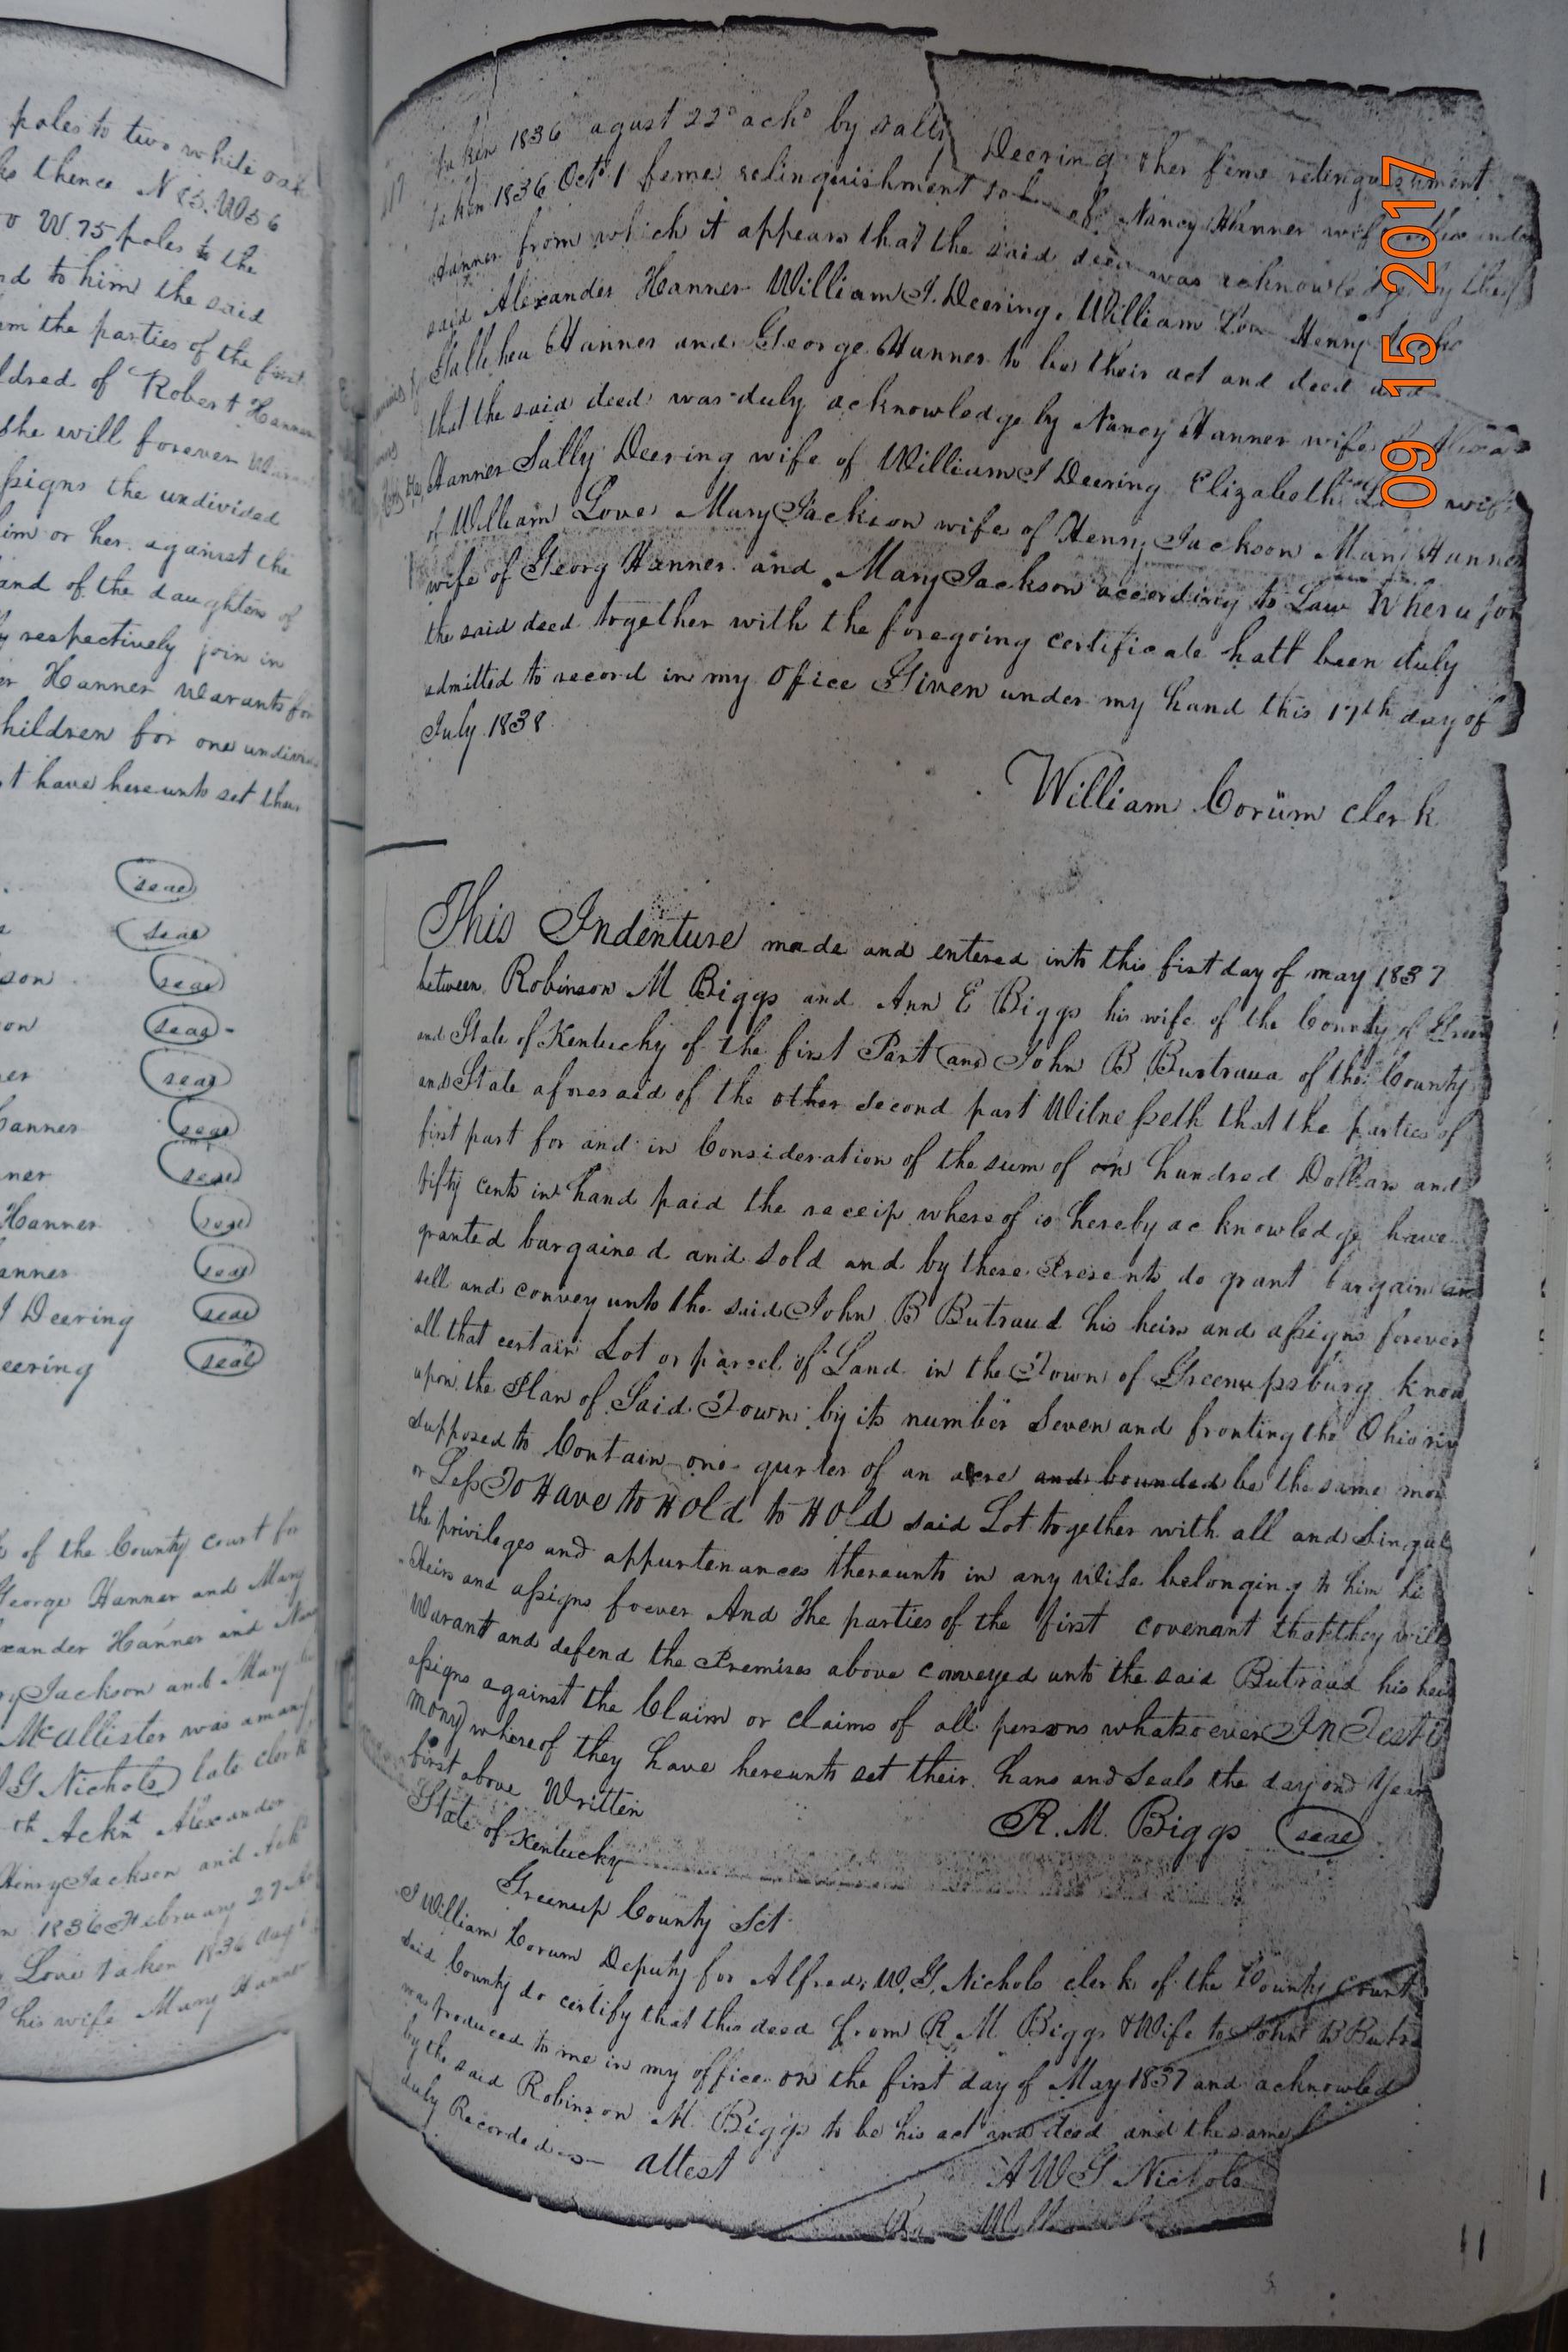 poles to two white oak
thence N 83. W 56
W. 75 poles to the
to him the said
the parties of the first
of Robert Hanner
she will forever
assigns the undivided
him or her against the
and of the daughters of
respectively join in
Hanner Warants for
children for one
have hereunto set their
seal
seal
son seal
on seal
seal
seal
ner seal
Hanner seal
seal
J Deering seal
seal
of the County court for
George Hanner and Mary
Hanner and
Jackson and Mary
McAllister was
G Nichols late clerk
Acknd Alexander
Henry Jackson and
1836 February 27
Love taken 1836
his wife Mary Hanner
taken 1836 agust 22d ackd by Sally Deering & her feme relinquishment
taken 1836 Oct 1 feme relinquishment of Nancy Hanner wife
Hanner from which it appears that the said deed was acknowledge by the
said Alexander Hanner William J. Deering, William Henry
Hanner and George Hanner to be their act and deed and
that the said deed was duly acknowledge by Nancy Hanner wife
Hanner Sally Deering wife of William J Deering Elizabeth wife
of William Love Mary Jackson wife of Henry Jackson Mary Hanner
wife of Georg Hanner and Mary Jackson according to Law
the said deed together with the foregoing certificate hatt been duly
admitted to record in my office Given under my hand this 17th day of
July 1838
William Corum clerk
This Indenture made and entered into this first day of may 1837
between Robinson M Biggs and Ann E Biggs his wife of the County of
and State of Kentucky of the first Part and John B Burtraua of the County
and State aforesaid of the other second part Witnesseth that the parties of
first part for and in Consideration of the sum of on hundred Dollars and
fifty cents in hand paid the receip whereof is hereby acknowledge have
granted bargained and sold and by these Presents do grant bargain
sell and convey unto the said John B Butraud his heirs and assigns forever
all that certain Lot or parcel of Land in the Town of Greenupsburg
upon the Plan of Said Town by its number Seven and fronting the Ohio
supposed to Contain one qurter of an acre and bounded be the same
or Less To Have to Hold to Hold said Lot together with all and
the privileges and appurtenances thereunto in any wise belonging to him
Heirs and assigns foever And the parties of the first covenant that they will
Warant and defend the Premises above conveyed unto the said Butraud his
assigns against the Claim or claims of all persons whatsoever In Testi
mony whereof they have hereunto set their hans and Seals the day and Year
first above Written
R. M. Biggs seal
State of Kentucky
Greenup County Sct
I William Corum Deputy for Alfred W. G. Nichols clerk of the County court
said County do certify that this deed from R M Biggs & Wife to John B
was produced to me in my office on the first day of May 1837 and
by the said Robinson M Biggs to be his act and deed and the same
duly Recorded attest
A W G Nichols
09 15 2017
11